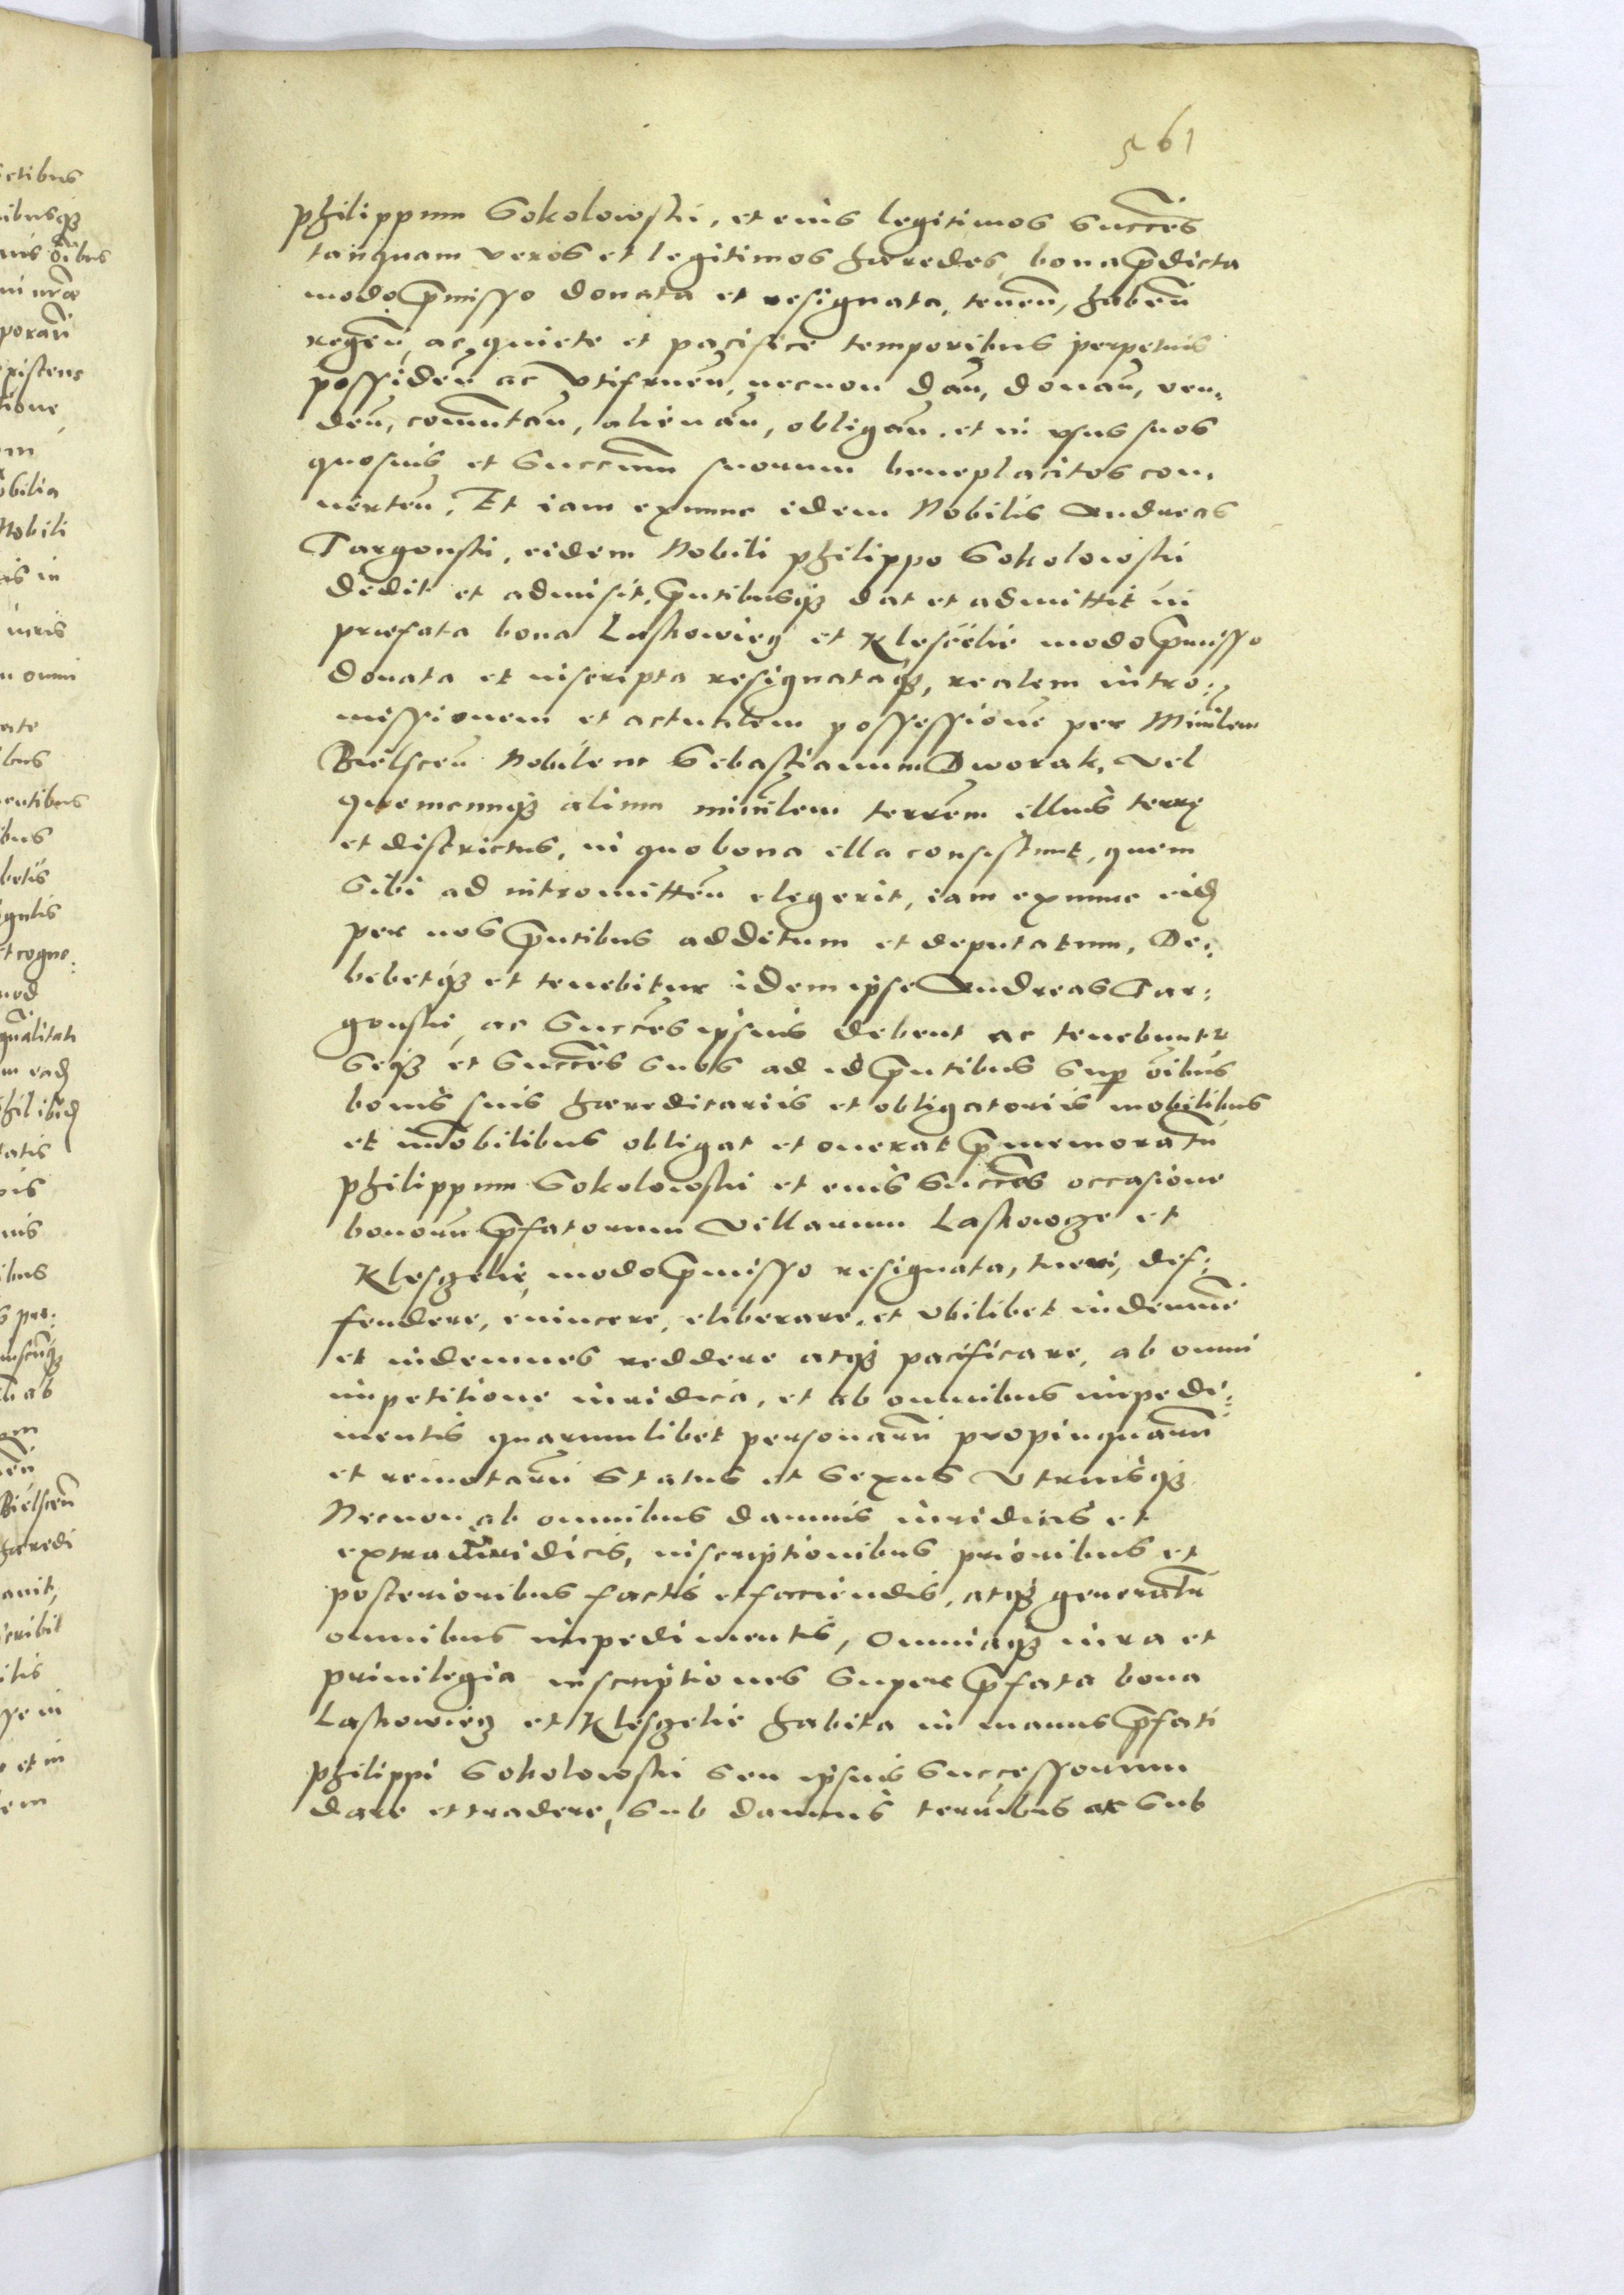 561
Philippum Sokolowski, et eius legitimos Succēs
tanquam veros et legitimos hæredes, bona p̄dicta
modo p̄misso donata et resignata, tenen̄, haben̄
regen̄, ac quiete et pacifice temporibus perpetuis
possiden̄ ac vtifruen̄, necnon dan̄, donan̄, ven,
den̄, com̄utan̄, alienan̄, obligan̄. et in vsus suos
quosuis et Succūm suorum beneplacitos con,
uerten̄. Et iam exnunc idem Nobilis Andreas
Targonski, eidem Nobili Philippo Sokolowski
dedit et admisit, p̄ntibusq3 dat et admittit in
præfata bona Laskowiecz et Klesčele modo p̄misso
donata et inscripta resignataq3, realem intro:
missionem et actualem possessionē per Minilem
Bielscen̄ Nobilem Sebastianum Dworak, vel
quemcunq3 alium minilem terrēm illius terrę
et districtus, in quo bona illa consistunt, quem
Sibi ad intromitten̄ elegerit, iam exnunc eid
per nos p̄ntibus additum et deputatum, De:
bebetq3 et tenebitur idem ipse Andreas Tar:
gonski, ac Succēs ipsius debent ac tenebuntr
Seq3 et Succēs Suos ad id p̄ntibus Sup ōibus
bonis suis hæreditariis et obligatoriis mobilibus
et im̄obilibus obligat et onerat p̄memoratū
Philippum Sokolowski et eius Succēs occasione
bonorū p̄fatorum villarum Laskowcze et
Klesczele, modo p̄misso resignata, tueri, def:
fendere, euincere, eliberare, et vbilibet indemnē
et indemnes reddere atq3 pacificare, ab omni
impetitione iuridica, et ab omnibus impedi:
mentis quarumlibet personarū propinquarū
et remotarū Status et Sexus vtriusq3
Necnon ab omnibus damnis iuridicis et
extraiuridicis, inscriptionibus prioribus et
posterioribus factis et faciendis, atq3 generalr
omnibus impedimentis, Omniaq3 iura et
priuilegia inscriptiones Super p̄fata bona
Laskowiecz et Klesczele habita in manus p̄fati
Philippi Sokolowski Seu ipsius Successorum
dare et tradere, Sub damnis terribus ac Sub